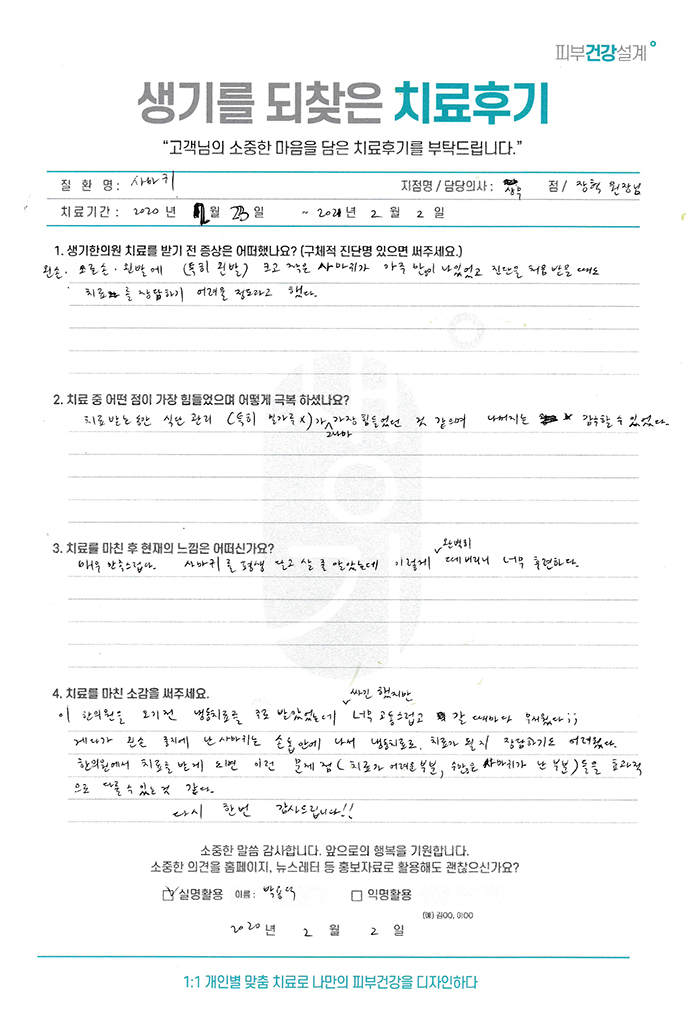 피부건강설계
생기를 되찾은 치료후기
“고객님의 소중한 마음을 담은 치료후기를 부탁드립니다.”
질 환 명 : 사마귀 지점명 / 담당의사 : 점 / 장혁 원장님
치료기간 : 2020 년 월 23 일 ~ 2021 년 2 월 2 일
1. 생기한의원 치료를 받기 전 증상은 어떠했나요? (구체적 진단명 있으면 써주세요.)
왼손. 오른손. 왼발에 (특히 왼발) 크고 작은 사마귀가 아주 많이 나있었고 진단을 처음 받을 때도
치료를 장담하기 어려울 정도라고 했다.
2. 치료 중 어떤 점이 가장 힘들었으며 어떻게 극복 하셨나요?
치료 받는 동안 식단 관리 (특히 밀가루 X)가 그나마 가장 힘들었던 것 같으며 나머지는 감수할 수 있었다.
3. 치료를 마친 후 현재의 느낌은 어떠신가요?
매우 만족스럽다. 사마귀를 평생 달고 살 줄 알았는데 이렇게 완벽히 떼버리니 너무 후련하다.
4. 치료를 마친 소감을 써주세요.
이 한의원을 오기전 냉동치료를 주로 받았었는데 싸긴 했지만 너무 고통스럽고 갈 때마다 무서웠다;;
게다가 왼손 중지에 난 사마귀는 손톱안에 나서 냉동치료로 치료가 될지 장담하기도 어려웠다.
한의원에서 치료를 받게 되면 이런 문제점(치료가 어려운 부분, 수많은 사마귀가 난 부분)들을 효과적
으로 다룰 수 있는 것 같다.
다시 한번 감사드립니다!!
소중한 말씀 감사합니다. 앞으로의 행복을 기원합니다.
소중한 의견을 홈페이지, 뉴스레터 등 홍보자료로 활용해도 괜찮으신가요?
실명활용 이름 : 익명활용
(예) 김OO, 이OO
2020 년 2 월 2 일
1:1 개인별 맞춤 치료로 나만의 피부건강을 디자인하다